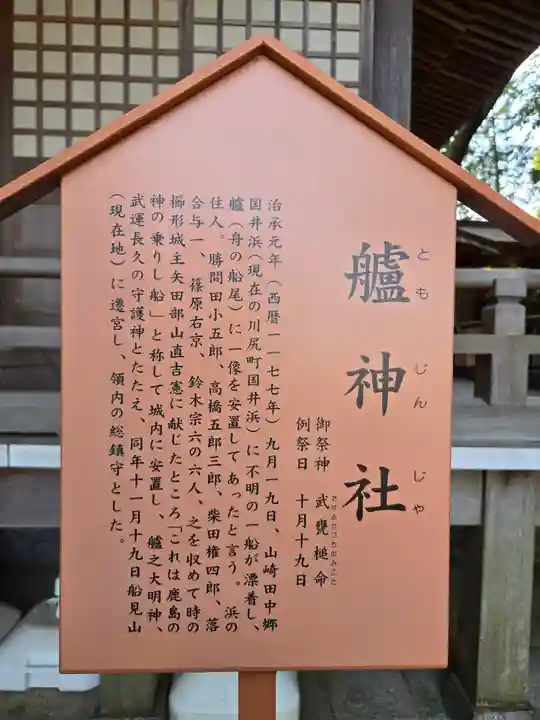 艫神社
とも じん じゃ
御祭神 武甕槌命
例祭日 十月十九日
治承元年（西暦一一七七年）九月一九日、山崎田中郷
国井浜（現在の川尻町国井浜）に不明の一船が漂着し、
艫（舟の船尾）に一像を安置してあったと言う。浜の
住人。勝間田小五郎、高橋五郎三郎、柴田権四郎、落
合与一、篠原右京、鈴木宗六の六人、之を収めて時の
櫛形城主矢田部山直吉憲に献じたところ「これは鹿島の
神の乗りし船」と称して城内に安置し、艫之大明神、
武運長久の守護神とたたえ、同年十一月十九日船見山
（現在地）に遷宮し、領内の総鎮守とした。